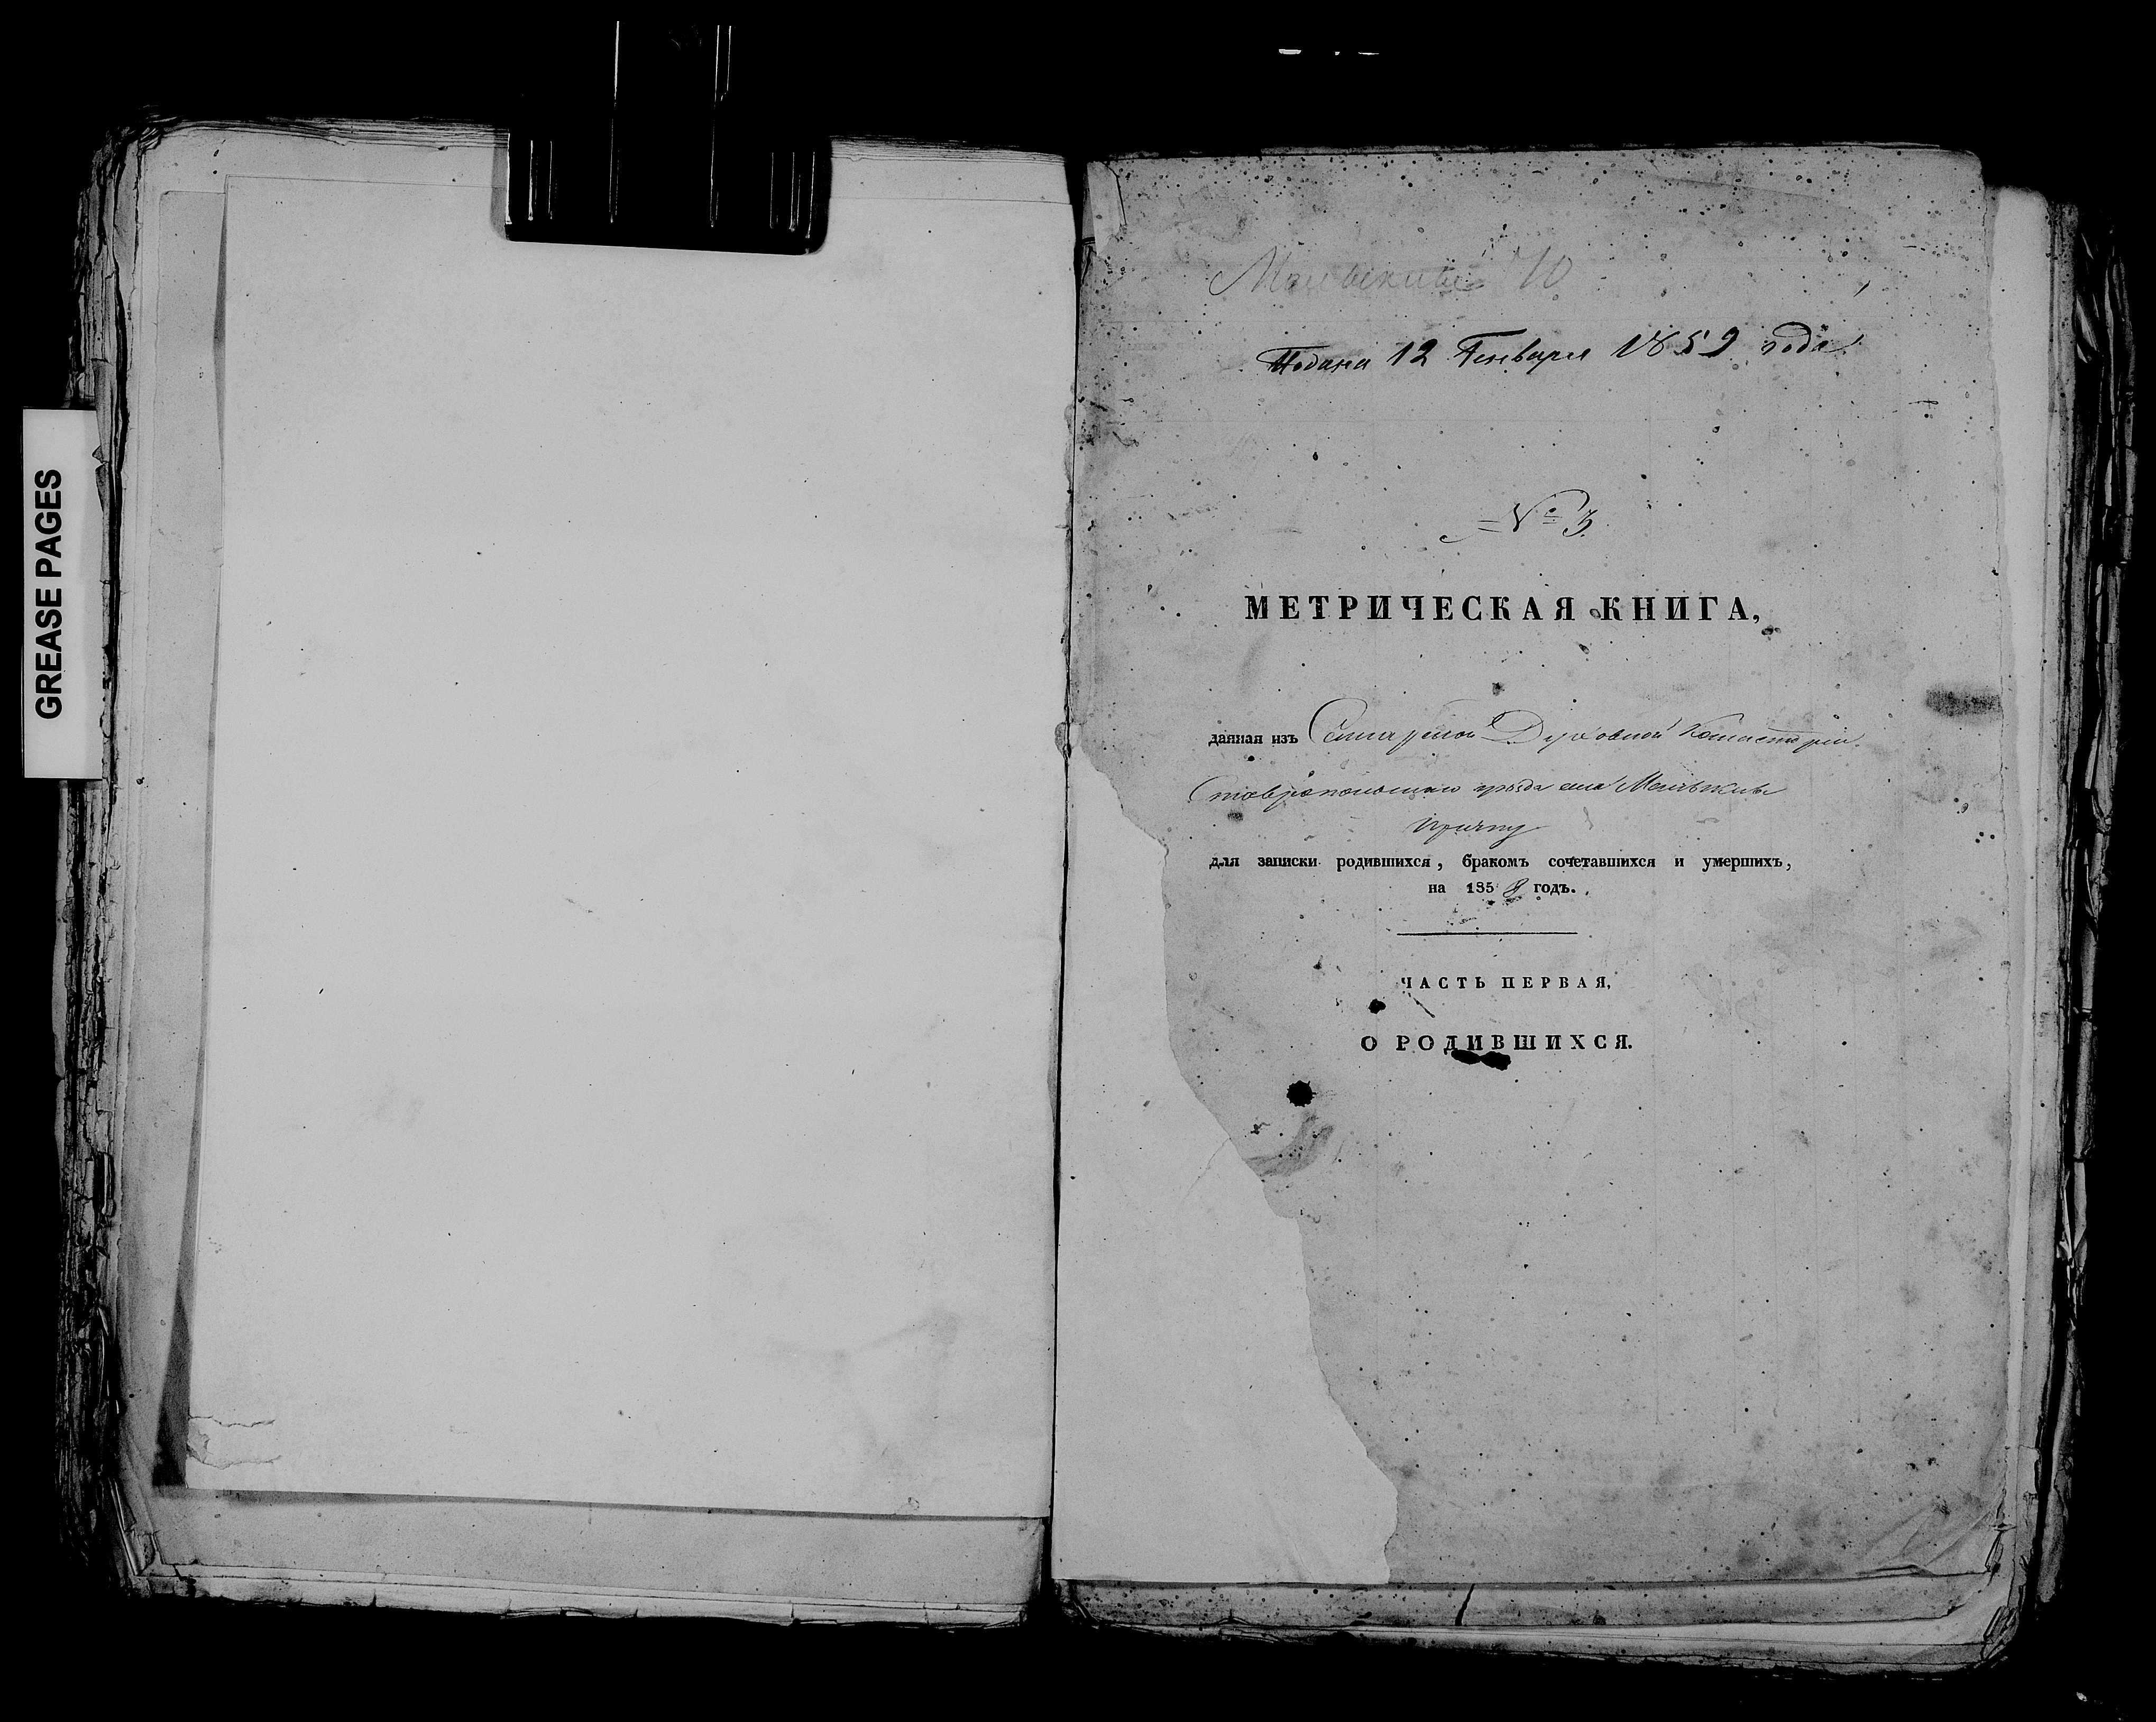 GREASE PAGES
Подана 12 Генваря 1859 года.
№ 3.
МЕТРИЧЕСКАЯ КНИГА,
данная изъ Самарской Духовной Консисторіи
Ставропольскаго уѣзда села
причту
для записки родившихся, бракомъ сочетавшихся и умершихъ,
на 1858 годъ.
ЧАСТЬ ПЕРВАЯ,
О РОДИВШИХСЯ.